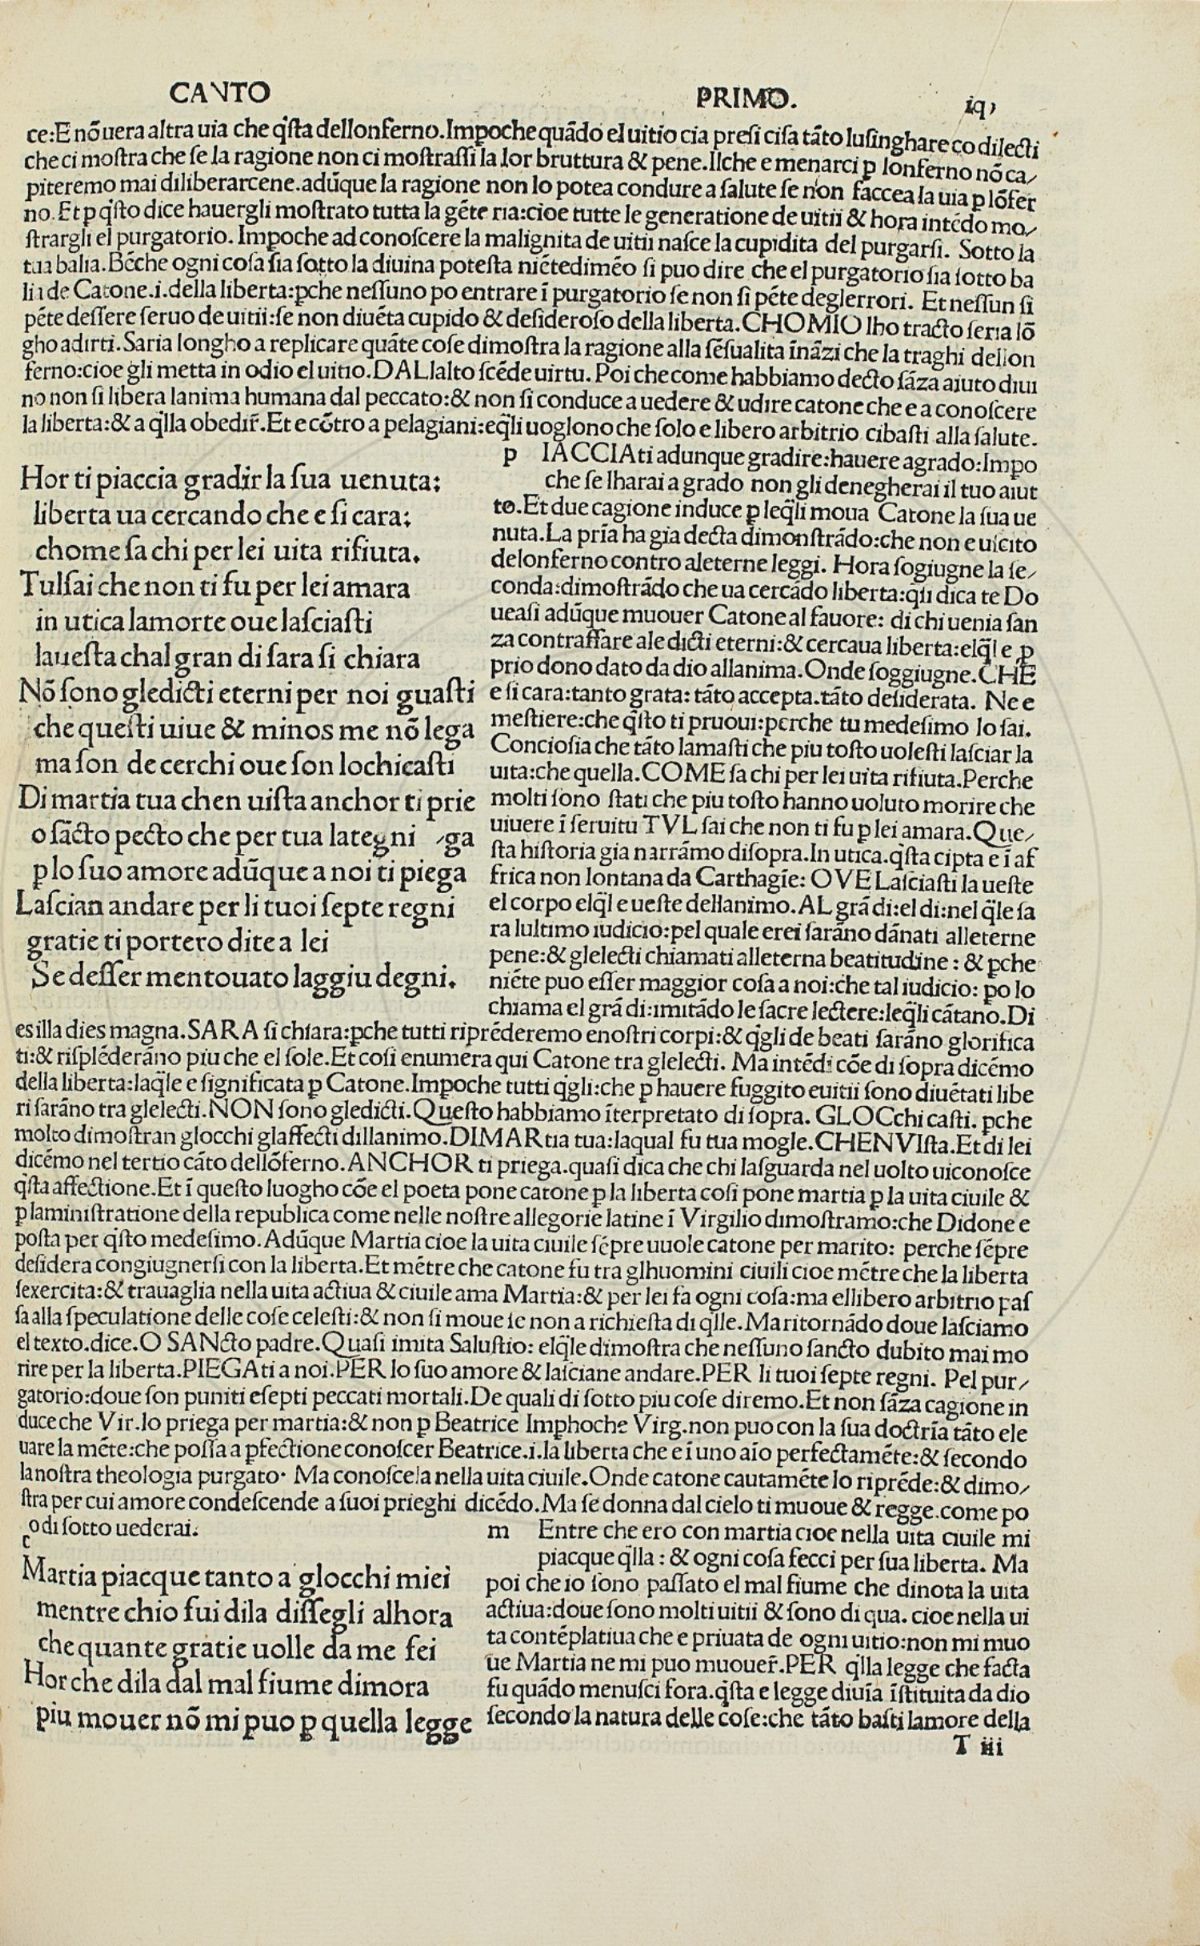 CANTO PRIMO.
ce:E nõ uera altra uia che q̃sta dellonferno.Impoche quãdo el uitio cia presi cisa tãto lusinghare co dilecti
che ci mostra che se la ragione non ci mostrassi la lor bruttura & pene.Ilche e menarci ꝑ lonferno nõ ca⸗
piteremo mai diliberarcene.adũque la ragione non lo potea condure a salute se non faccea la uia ꝑ lõfer
no.Et ꝑ q̃sto dice hauergli mostrato tutta la gẽte ria:cioe tutte le generatione de uitii & hora intẽdo mo⸗
strargli el purgatorio. Impoche ad conoscere la malignita de uitii nasce la cupidita del purgarsi. Sotto la
tua balia.Bẽche ogni cosa sia sotto la diuina potesta niẽtedimẽo si puo dire che el purgatorio sia sotto ba
lia de Catone.i.della liberta:ꝑche nessuno po entrare ĩ purgatorio se non si pẽte deglerrori. Et nessun si
pẽte dessere seruo de uitii:se non diuẽta cupido & desideroso della liberta.CHOMIO lho tracto seria lõ
gho adirti.Saria longho a replicare quãte cose dimostra la ragione alla sẽsualita ĩnãzi che la traghi dellon
ferno:cioe gli metta in odio el uitio.DALlalto scẽde uirtu. Poi che come habbiamo decto sãza aiuto diui
no non si libera lanima humana dal peccato:& non si conduce a uedere & udire catone che e a conoscere
la liberta:& a q̃lla obedir̃.Et e cõtro a pelagiani:eq̃li uoglono che solo e libero arbitrio cibasti alla salute.
Hor ti piaccia gradir la sua uenuta:
liberta ua cercando che e si cara:
chome sa chi per lei uita rifiuta.
Tulsai che non ti fu per lei amara
in utica lamorte oue lasciasti
lauesta chal gran di sara si chiara
Nõ sono gledicti eterni per noi guasti
che questi uiue & minos me nõ lega
ma son de cerchi oue son lochicasti
Di martia tua chen uista anchor ti prie
o sãcto pecto che per tua lategni ⸗ga
ꝑ lo suo amore adũque a noi ti piega
Lascian andare per li tuoi septe regni
gratie ti portero di te a lei
Se desser mentouato laggiu degni.
p IACCIAti adunque gradire:hauere agrado:Impo
che se lharai a grado non gli denegherai il tuo aiut
to.Et due cagione induce ꝑ leq̃li moua Catone la sua ue
nuta.La prĩa ha gia decta dimonstrãdo:che non e uscito
delonferno contro aleterne leggi. Hora sogiugne la se⸗
conda:dimostrãdo che ua cercãdo liberta:q̃si dica te Do
ueasi adũque muouer Catone al fauore: di chi uenia san
za contraffare ale dicti eterni:& cercaua liberta:elq̃l e ꝓ
prio dono dato da dio allanima.Onde soggiugne.CHE
e si cara:tanto grata: tãto accepta.tãto desiderata. Ne e
mestiere:che q̃sto ti pruoui:perche tu medesimo lo sai.
Conciosia che tãto lamasti che piu tosto uolesti lasciar la
uita:che quella.COME sa chi per lei uita rifiuta.Perche
molti sono stati che piu tosto hanno uoluto morire che
uiuere ĩ seruitu TVL sai che non ti fu ꝑ lei amara.Que⸗
sta historia gia narrãmo disopra.In utica.q̃sta cipta e ĩ af
frica non lontana da Carthagĩe: OVE Lasciasti la ueste
el corpo elq̃l e ueste dellanimo.AL grã di:el di:nel q̃le sa
ra lultimo iudicio:pel quale erei sarãno dãnati alleterne
pene:& glelecti chiamati alleterna beatitudine: & ꝑche
niẽte puo esser maggior cosa a noi:che tal iudicio: ꝑo lo
chiama el grã di:imitãdo le sacre lectere:leq̃li cãtano.Di
es illa dies magna.SARA si chiara:ꝑche tutti riprẽderemo enostri corpi:& q̃gli de beati sarãno glorifica
ti:& risplẽderãno piu che el sole.Et cosi enumera qui Catone tra glelecti. Ma intẽdi cõe di sopra dicẽmo
della liberta:laq̃le e significata ꝑ Catone.Impoche tutti q̃gli:che ꝑ hauere fuggito euitii sono diuẽtati libe
ri sarãno tra glelecti.NON sono gledicti.Questo habbiamo ĩterpretato di sopra. GLOCchi casti. ꝑche
molto dimostran glocchi glaffecti dillanimo.DIMARtia tua:laqual fu tua mogle.CHENVIsta.Et di lei
dicẽmo nel tertio cãto dellõferno.ANCHOR ti priega.quasi dica che chi lasguarda nel uolto uiconosce
q̃sta affectione.Et ĩ questo luogho cõe el poeta pone catone ꝑ la liberta cosi pone martia ꝑ la uita ciuile &
ꝑ laministratione della republica come nelle nostre allegorie latine ĩ Virgilio dimostramo:che Didone e
posta per q̃sto medesimo.Adũque Martia cioe la uita ciuile sẽpre uuole catone per marito: perche sẽpre
desidera congiugnersi con la liberta.Et mẽtre che catone fu tra glhuomini ciuili cioe mẽtre che la liberta
sexercita:& trauaglia nella uita actiua & ciuile ama Martia:& per lei fa ogni cosa:ma ellibero arbitrio pas
sa alla speculatione delle cose celesti:& non si moue se non a richiesta di q̃lle. Maritornãdo doue lasciamo
el texto.dice.O SANcto padre.Quasi imita Salustio: elq̃le dimostra che nessuno sancto dubito mai mo
rire per la liberta.PIEGAti a noi.PER lo suo amore & lasciane andare.PER li tuoi septe regni. Pel pur⸗
gatorio:doue son puniti esepti peccati mortali.De quali di sotto piu cose diremo.Et non sãza cagione in
duce che Vir.lo priega per martia:& non ꝑ Beatrice Imphoche Virg.non puo con la sua doctrĩa tãto ele
uare la mẽte:che possa a ꝑfectione conoscer Beatrice.i.la liberta che e ĩ uno aĩo perfectamẽte:& secondo
la nostra theologia purgato. Ma conoscela nella uita ciuile.Onde catone cautamẽte lo riprẽde:& dimo⸗
stra per cui amore condescende a suoi prieghi dicẽdo.Ma se donna dal cielo ti muoue & regge.come po
o di sotto uederai.
c
Martia piacque tanto a glocchi miei
mentre chio fui dila dissegli alhora
che quante gratie uolle da me fei
Hor che dila dal mal fiume dimora
piu mouer nõ mi puo ꝑ quella legge
m Entre che ero con martia cioe nella uita ciuile mi
piacque q̃lla: & ogni cosa fecci per sua liberta. Ma
poi che io sono passato el mal fiume che dinota la uita
actiua:doue sono molti uitii & sono di qua. cioe nella ui
ta contẽplatiua che e priuata de ogni uitio:non mi muo
ue Martia ne mi puo muouer̃.PER q̃lla legge che facta
fu quãdo menusci fora.q̃sta e legge diuĩa ĩstituita da dio
secondo la natura delle cose:che tãto basti lamore della
T iii